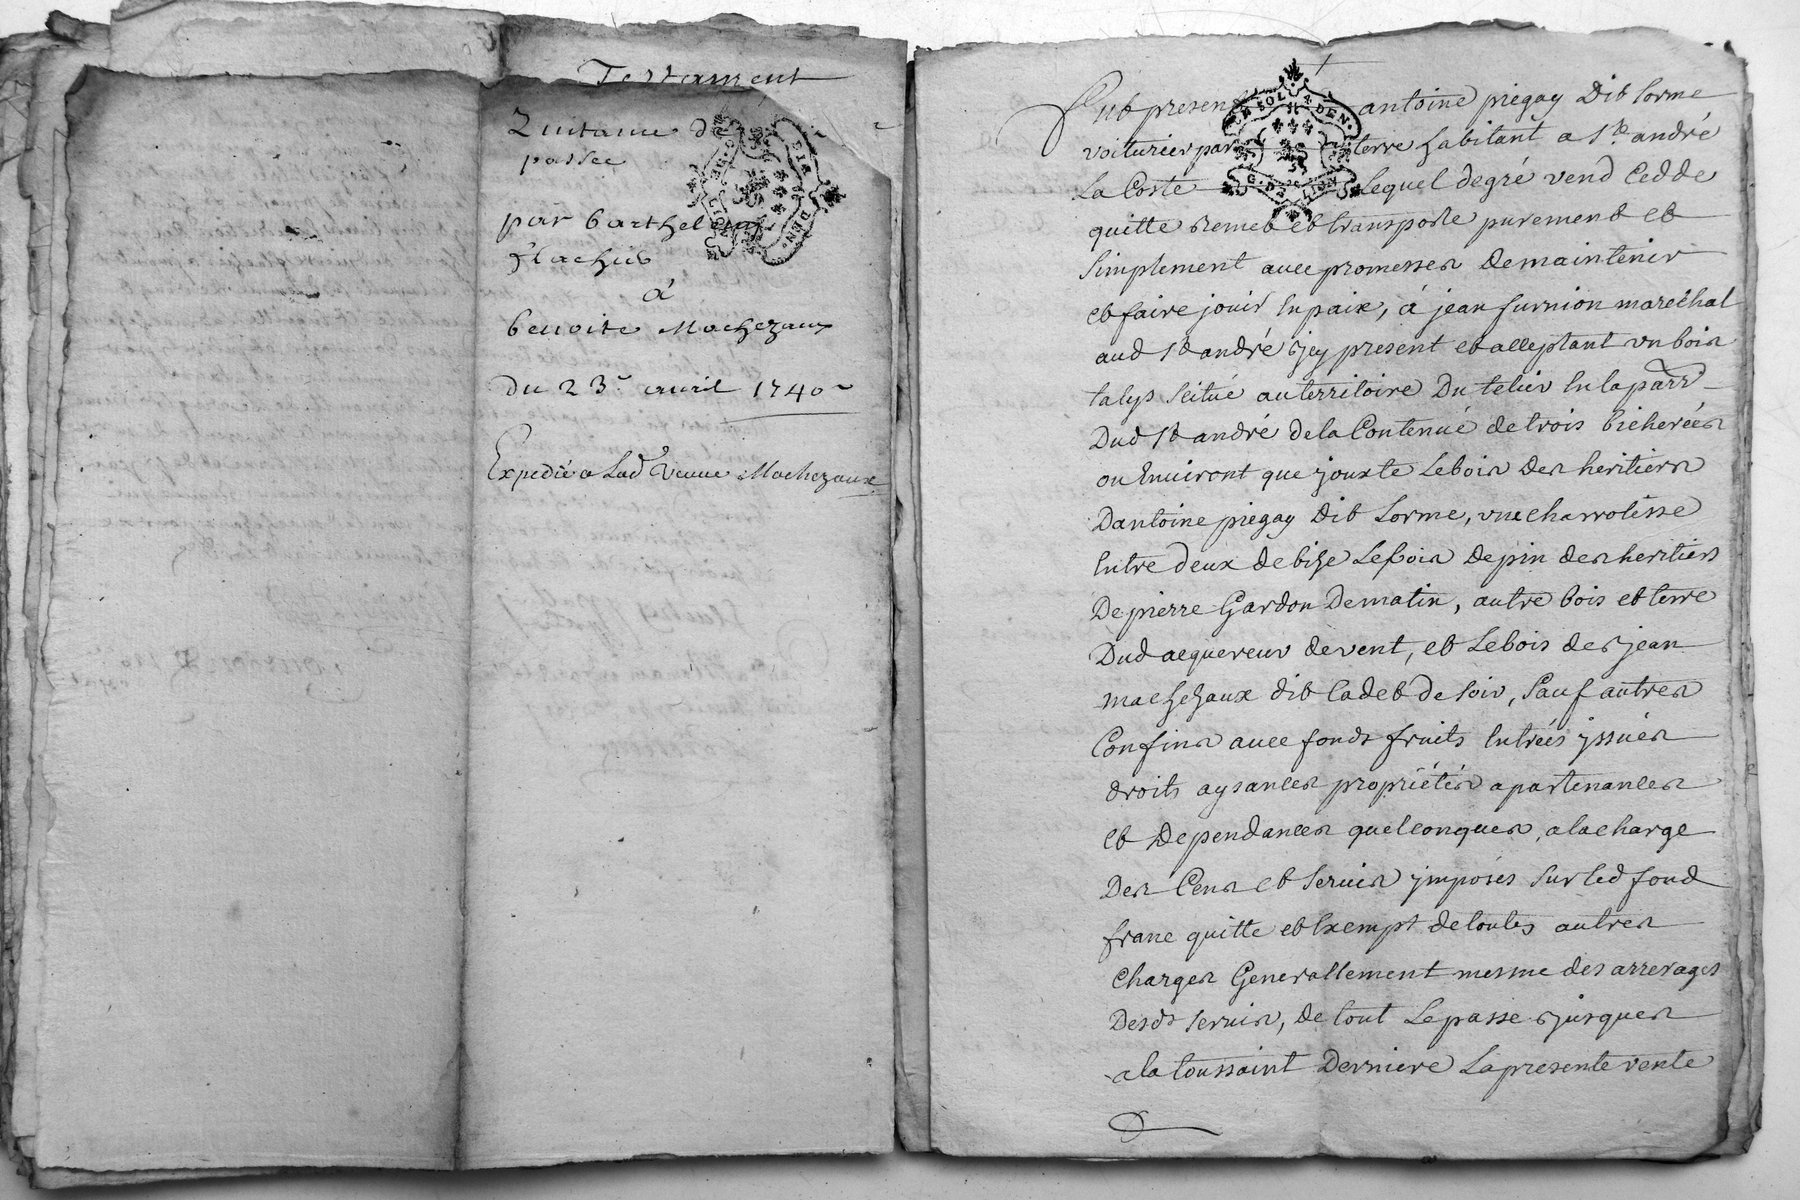 Testament
Quitance de
passee
par Barthelemy
flachiv
à
benoite Mochezaux
du 23e avril 1740
Expedié a Lad Veuve Mochezaux
Fut present antoine piegay Dit Lorme
voiturier par terre habitant a St andré
La Coste Lequel de gré vend Cedde
quitte remet et transporte purement et
Simplement avec promesses De maintenir
et faire jouir En paix, à jean furnion maréchal
aud St andré jcy present et acceptant un bois
talys Scitué au territoire Du telier En la parr
Dud St andré de la Contenüe de trois bicherées
ou Environt que jouxte Le bois Des heritiers
Dantoine piegay Dit Lorme, une charrotesse
Entre deux de bize Le bois De pin des heritiers
De pierre Gardon De matin, autre bois et terre
Dud acquereur de vent, et Le bois de jean
machezaux dit Cadet de soir, Sauf autres
Confins avec fonds fruits Entrées jssües
droits aysances propriétés apartenances
et Dependances quelconques, a la charge
Des Cens et Servis jmposés Sur led fond
franc quitte et Exempt de toutes autres
charges Generallement mesme des arrerages
Desds servis, de tout Le passe jusques
a la toussaint Derniere La presente vente